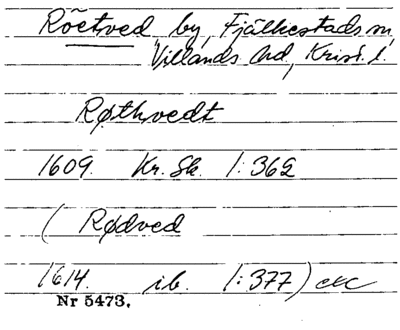 Röetved by, Fjälkestads sn,
Villands hd, Krist. l.
Røthvedt
1609. Kr. Sk. 1:362
( Rødved
1614. ib. 1:377) etc
Nr 5473.